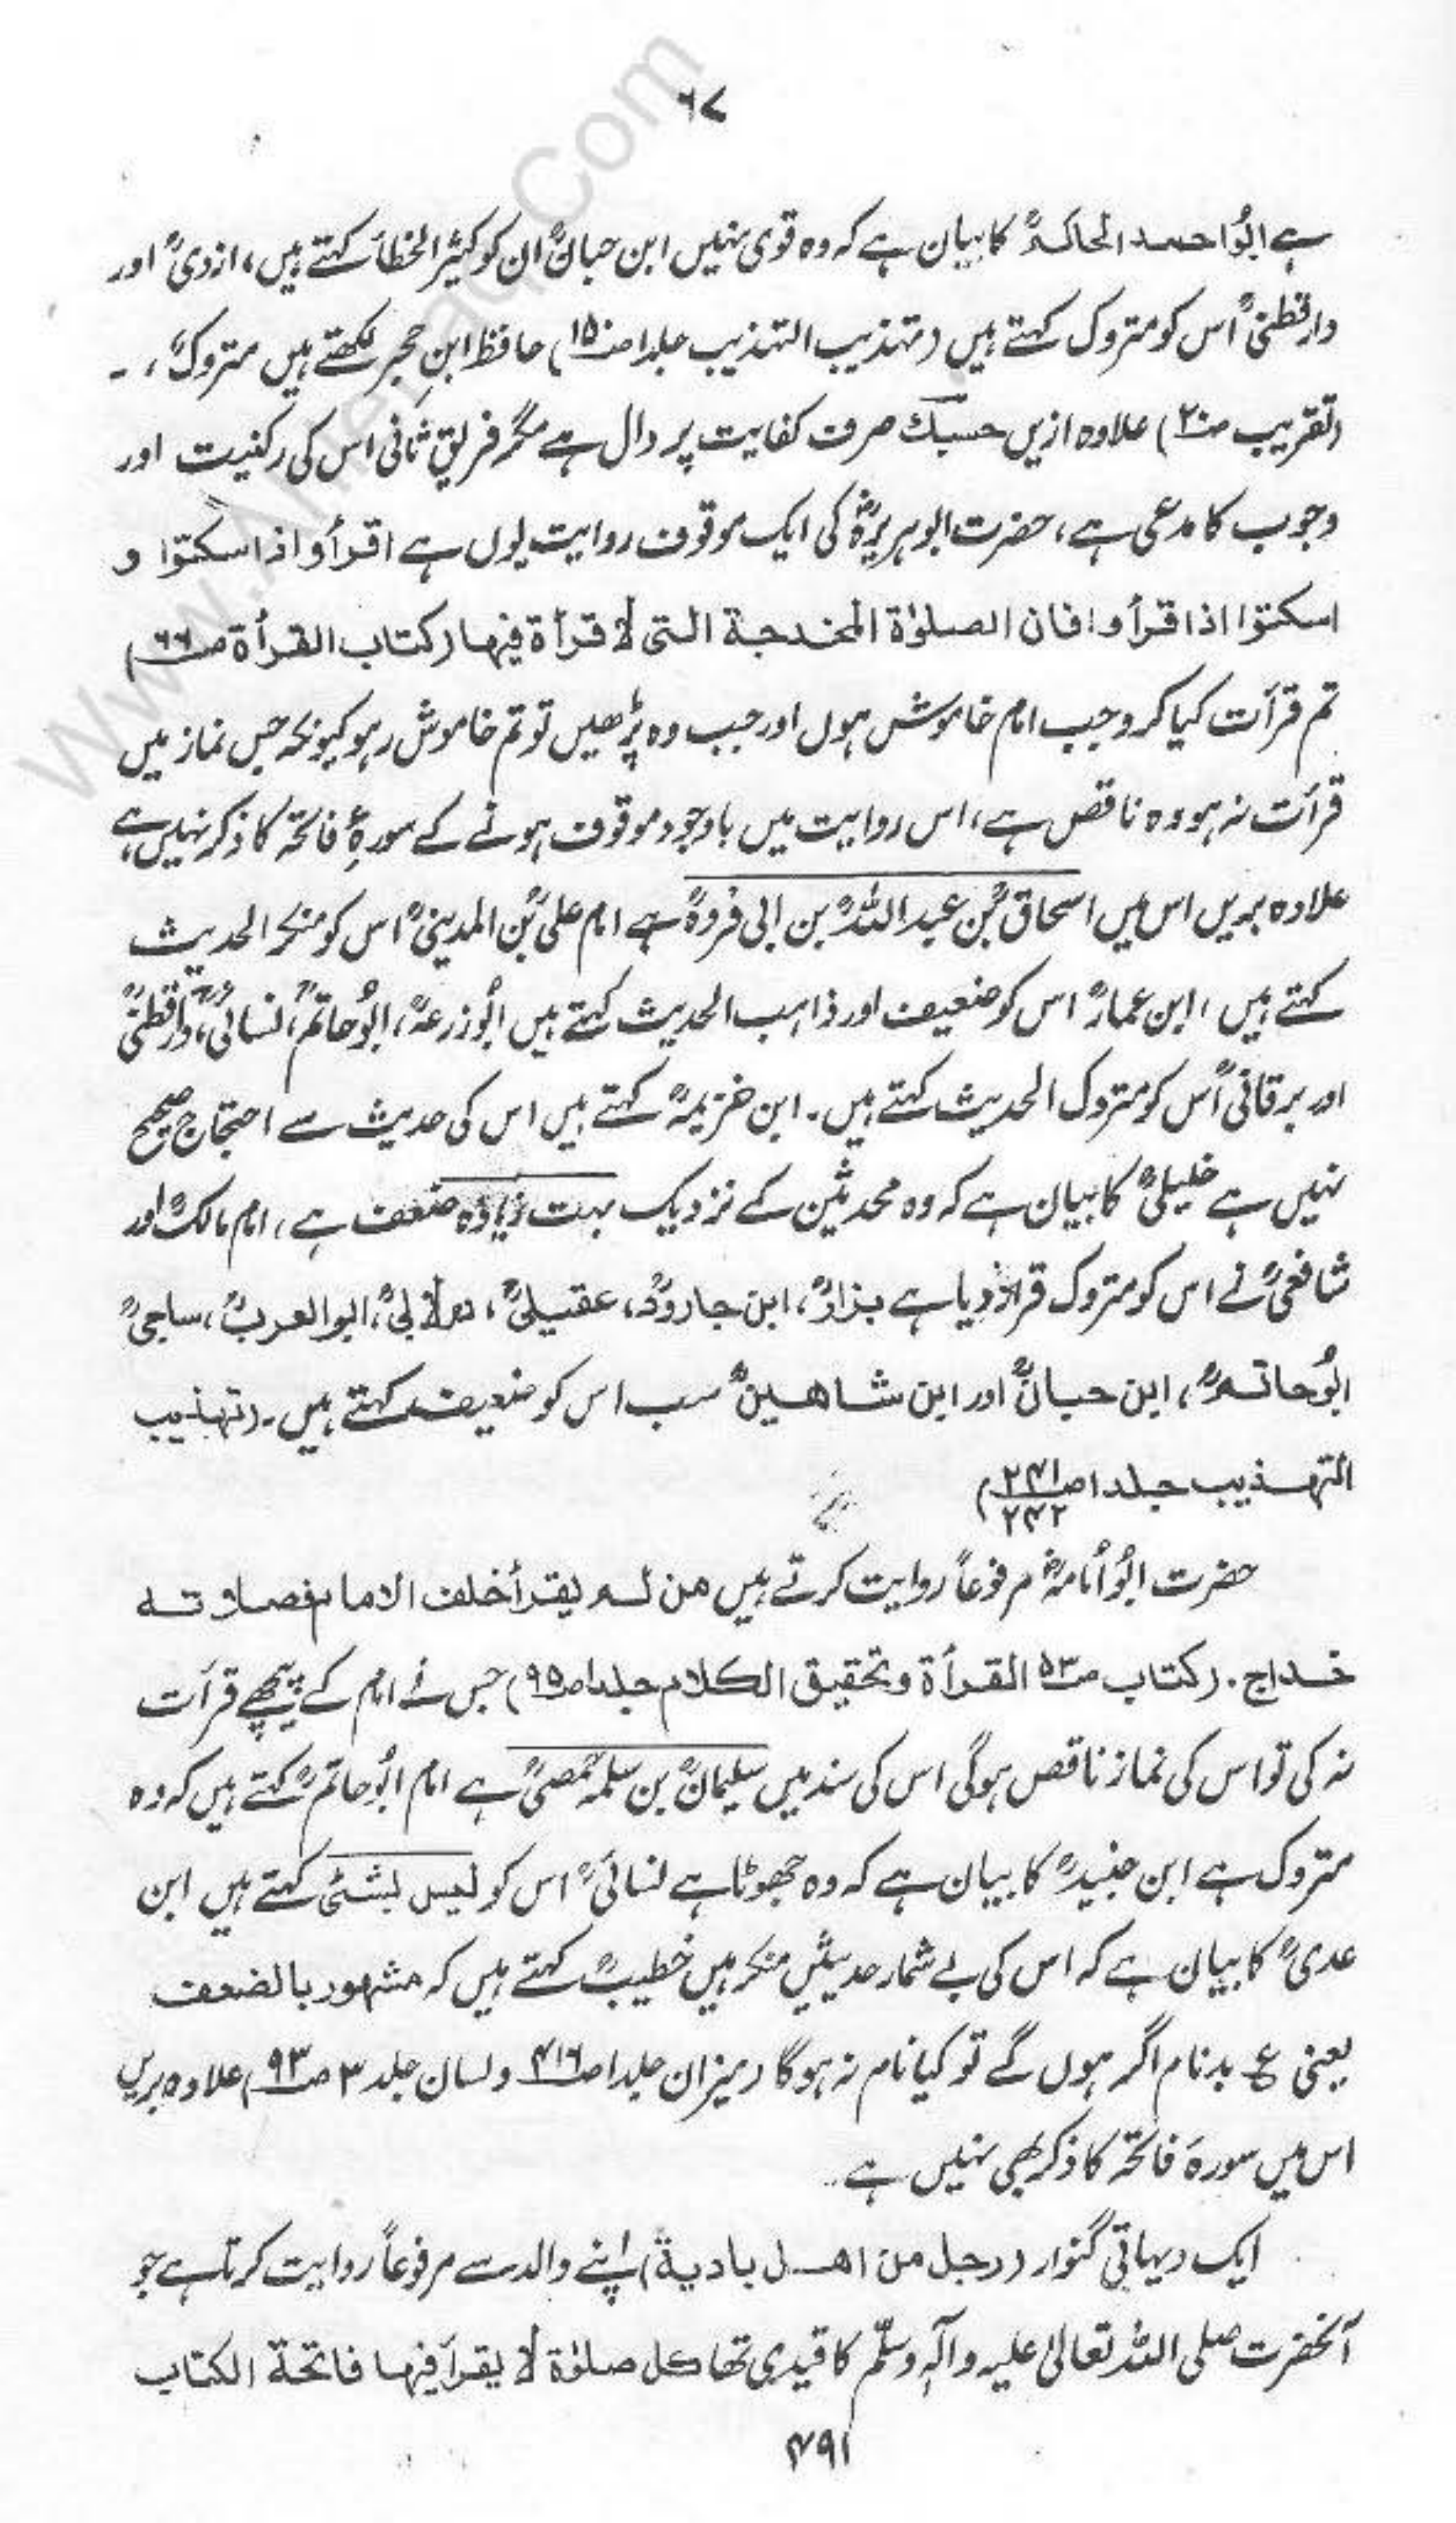 ۶۷
ہے ابُو احمد الحاکمؒ کا بیان ہے کہ وہ قوی نہیں ابن حبانؒ ان کو کثیر الخطأ کہتے ہیں، ازدیؒ اور
دارقطنیؒ اس کو متروک کہتے ہیں (تہذیب التہذیب جلد۱ ص۱۵) حافظ ابنِ حجر لکھتے ہیں متروکؒ، ۔
(تقریب ص۲۰) علاوہ ازیں حسبک صرف کفایت پر دال ہے مگر فریقِ ثانی اس کی رکنیت اور
وجوب کا مدعی ہے، حضرت ابوہریرہؓ کی ایک موقوف روایت یوں ہے اقرأوا اذا سکتوا و
اسکتوا اذا قرأوا فان الصلوٰة المخدجة التی لا قرأة فیہا (کتاب القرأة ص۶۶)
تم قرأت کیا کرو جب امام خاموش ہوں اور جب وہ پڑھیں تو تم خاموش رہو کیونکہ جس نماز میں
قرأت نہ ہو وہ ناقص ہے، اس روایت میں باوجود موقوف ہونے کے سورۂ فاتحہ کا ذکر نہیں ہے
علاوہ بریں اس میں اسحاقؒ بن عبداللہؒ بن ابی فروہؒ ہے امام علیؒ بن المدینیؒ اس کو منکر الحدیث
کہتے ہیں، ابن عمارؒ اس کو ضعیف اور ذاہب الحدیث کہتے ہیں ابُوزرعہؒ، ابُوحاتمؒ، نسائیؒ، دارقطنیؒ
اور برقانیؒ اس کو متروک الحدیث کہتے ہیں۔ ابن خزیمہؒ کہتے ہیں اس کی حدیث سے احتجاج صحیح
نہیں ہے خلیلیؒ کا بیان ہے کہ وہ محدثین کے نزدیک بہت زیادہ ضعف ہے، امام مالکؒ اور
شافعیؒ نے اس کو متروک قرار دیا ہے بزارؒ، ابن جارودؒ، عقیلیؒ، دولابیؒ، ابوالعربؒ، ساجیؒ
ابُوحاتمؒ، ابن حبانؒ اور ابن شاھینؒ سب اس کو ضعیف کہتے ہیں۔ (تہذیب
التہذیب جلد۱ ص۲۴۱ ۲۴۲)
حضرت ابُو اُمامہؓ مرفوعاً روایت کرتے ہیں من لم یقرأ خلف الامام فصلاتہ
خداج۔ (کتاب ص۵۳ القرأة وتحقیق الکلام جلد۱ ص۹۵) جس نے امام کے پیچھے قرأت
نہ کی تو اس کی نماز ناقص ہوگی اس کی سند میں سلیمانؒ بن سلمہ حمصیؒ ہے امام ابُوحاتمؒ کہتے ہیں کہ وہ
متروک ہے ابن جنیدؒ کا بیان ہے کہ وہ جھوٹا ہے نسائیؒ اس کو لیس بشئ کہتے ہیں ابن
عدیؒ کا بیان ہے کہ اس کی بے شمار حدیثیں منکر ہیں خطیبؒ کہتے ہیں کہ مشہور بالضعف
یعنی ع بدنام اگر ہوں گے تو کیا نام نہ ہوگا (میزان جلد۱ ص۴۱۶ ولسان جلد ۳ ص۹۳) علاوہ بریں
اس میں سورۂ فاتحہ کا ذکر بھی نہیں ہے۔
ایک دیہاتی گنوار (رجل من اھل بادیة) اپنے والد سے مرفوعاً روایت کرتا ہے جو
آنحضرت صلی اللہ تعالیٰ علیہ وآلہٖ وسلّم کا قیدی تھا کل صلوٰة لا یقرأ فیہا فاتحة الکتاب
۴۹۱